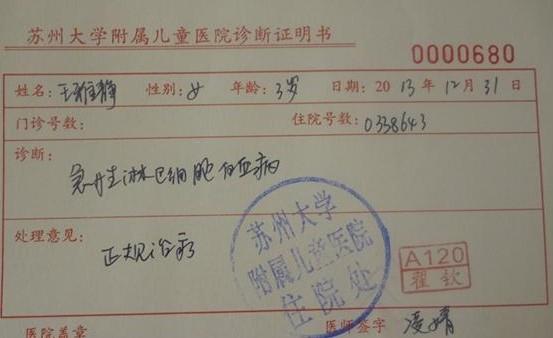 苏州大学附属儿童医院诊断证明书
0000680
姓名：王雅静 性别：女 年龄：3岁 日期：2013年12月31日
门诊号数： 住院号数：0338643
诊断：
急性淋巴细胞白血病
处理意见：
正规治疗
苏州大学
附属儿童医院
住院处
A120
翟钦
医院盖章 医师签字